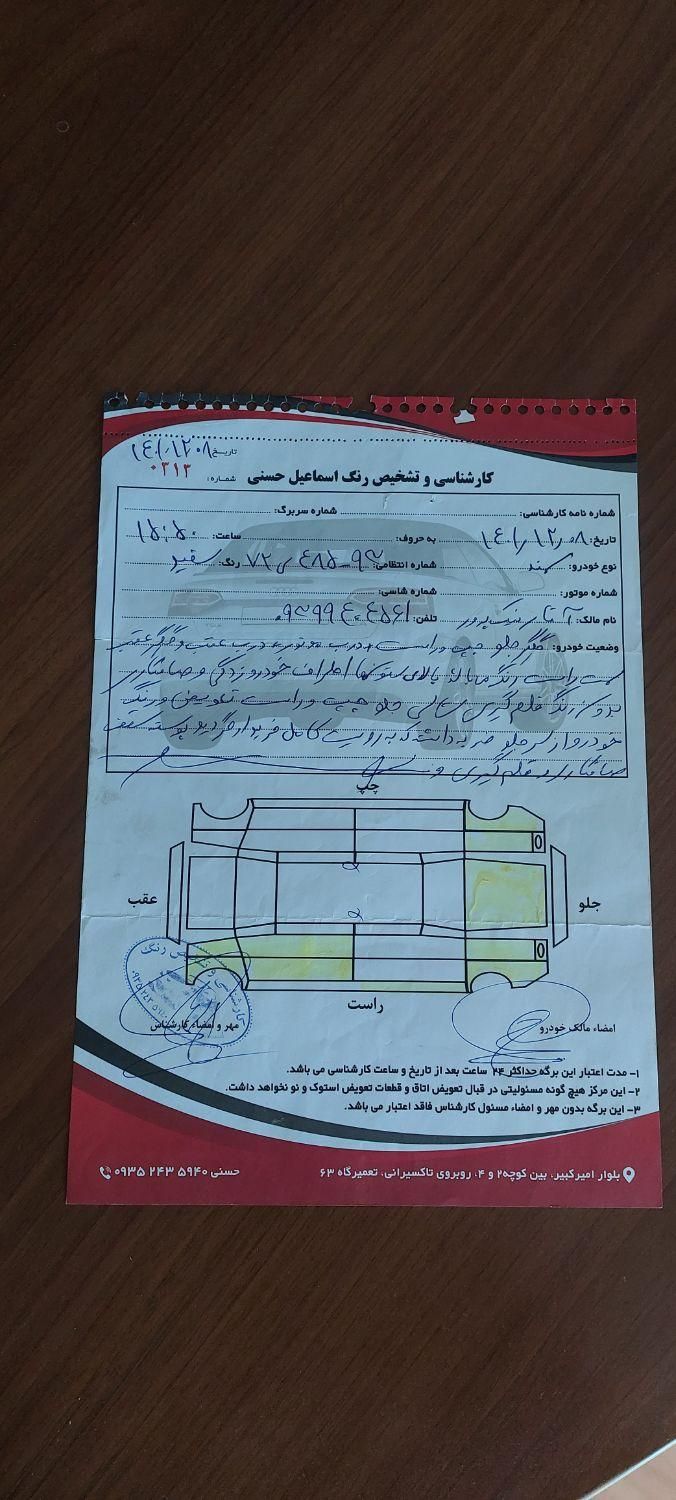 تاریخ: ۱۴۰۱/۱۲/۰۸
شماره: ۰۳۱۳
کارشناسی و تشخیص رنگ اسماعیل حسنی
شماره نامه کارشناسی: شماره سربرگ:
تاریخ: ۱۴۰۱/۱۲/۰۸ به حروف: ساعت: ۱۵:۵۰
نوع خودرو: سمند شماره انتظامی: رنگ: سفید
شماره موتور: شماره شاسی:
نام مالک: آقای تلفن:
وضعیت خودرو: گلگیر جلو چپ و راست و درب موتور و درب عقب و گلگیر عقب
سمت راست رنگ می باشد بالای ستونها اطراف خودرو زدگی و صافکاری
بدون رنگ قلم گیری شاسی جلو چپ و راست تعویض و رنگ
خودرو از سر جلو ضربه داشته که به رویت کامل خریدار گردید پوسته سقف
صافکاری و قلم گیری
چپ
جلو
عقب
راست
امضاء مالک خودرو
مهر و امضاء کارشناس
کارشناسی و تشخیص رنگ
۱- مدت اعتبار این برگه حداکثر ۲۴ ساعت بعد از تاریخ و ساعت کارشناسی می باشد.
۲- این مرکز هیچ گونه مسئولیتی در قبال تعویض اتاق و قطعات تعویض استوک و نو نخواهد داشت.
۳- این برگه بدون مهر و امضاء مسئول کارشناس فاقد اعتبار می باشد.
بلوار امیرکبیر، بین کوچه۲ و ۴، روبروی تاکسیرانی، تعمیرگاه ۶۳
حسنی ۰۹۳۵ ۲۴۳ ۵۹۴۰